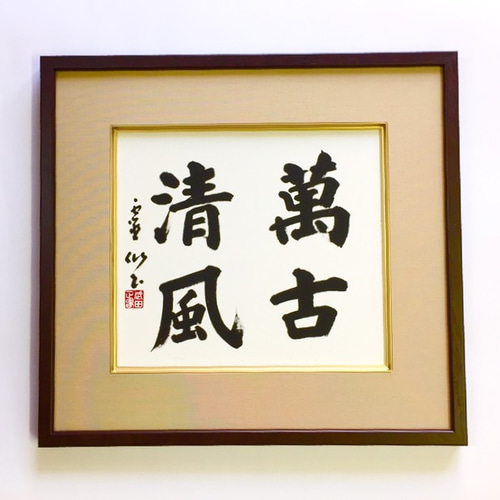 萬古
清風